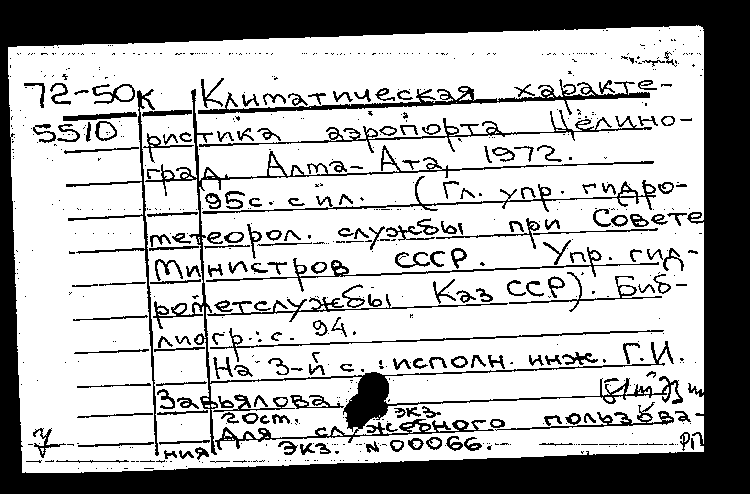 72-50к Климатическая характе-
5510 ристика аэропорта Целино-
град. Алма-Ата, 1972.
95с. с ил. (Гл. упр. гидро-
метеорол. службы при Совете
Министров СССР. Упр. гид-
рометслужбы Каз ССР). Биб-
лиогр.: с. 94.
На 3-й с.: исполн. инж. Г.И.
Завьялова.
20ст. экз.
Для служебного пользова-
ния экз. №00066. РП